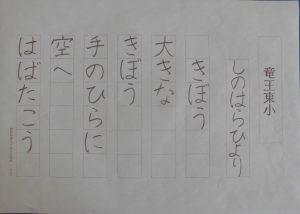 竜王東小
しのはらひより
きぼう
大きな
きぼう
手のひらに
空へ
はばたこう